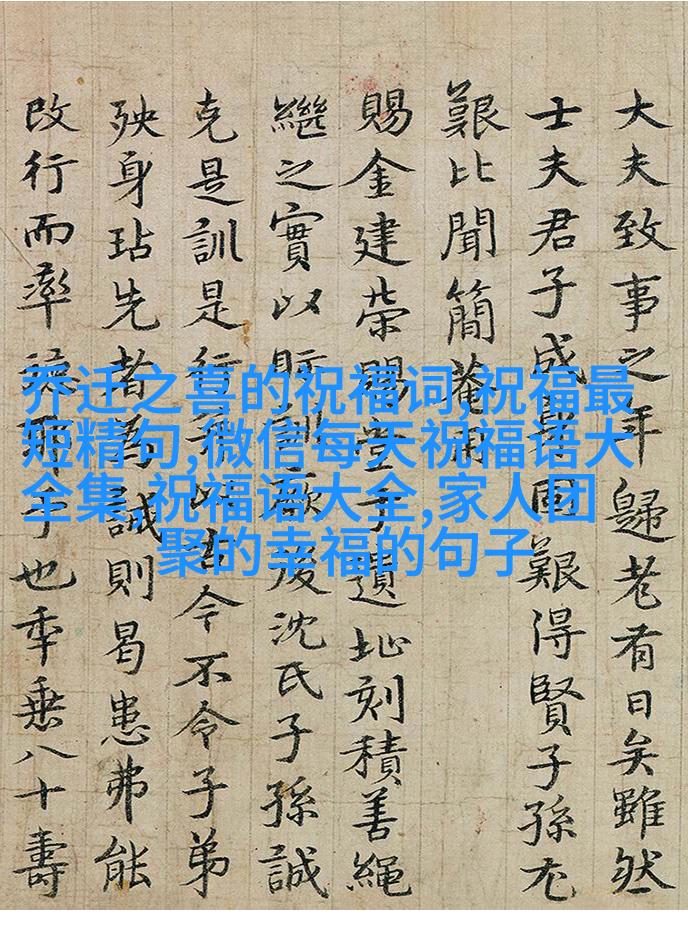 大夫致事之年歸老有日矣雖然
士夫君子成固艱得賢子孫尤
艱比聞簡菴
賜金建榮賜堂于遺址刻積善繩
繼之實以貽訓厥後沈氏子孫誠
克是訓是行以令不令子弟
殃身玷先者為誡則曷患弗能
改行而率德耶予也年垂八十壽
乔迁之喜的祝福词,祝福最
短精句,微信每天祝福语大
全集,祝福语大全,家人团
聚的幸福的句子